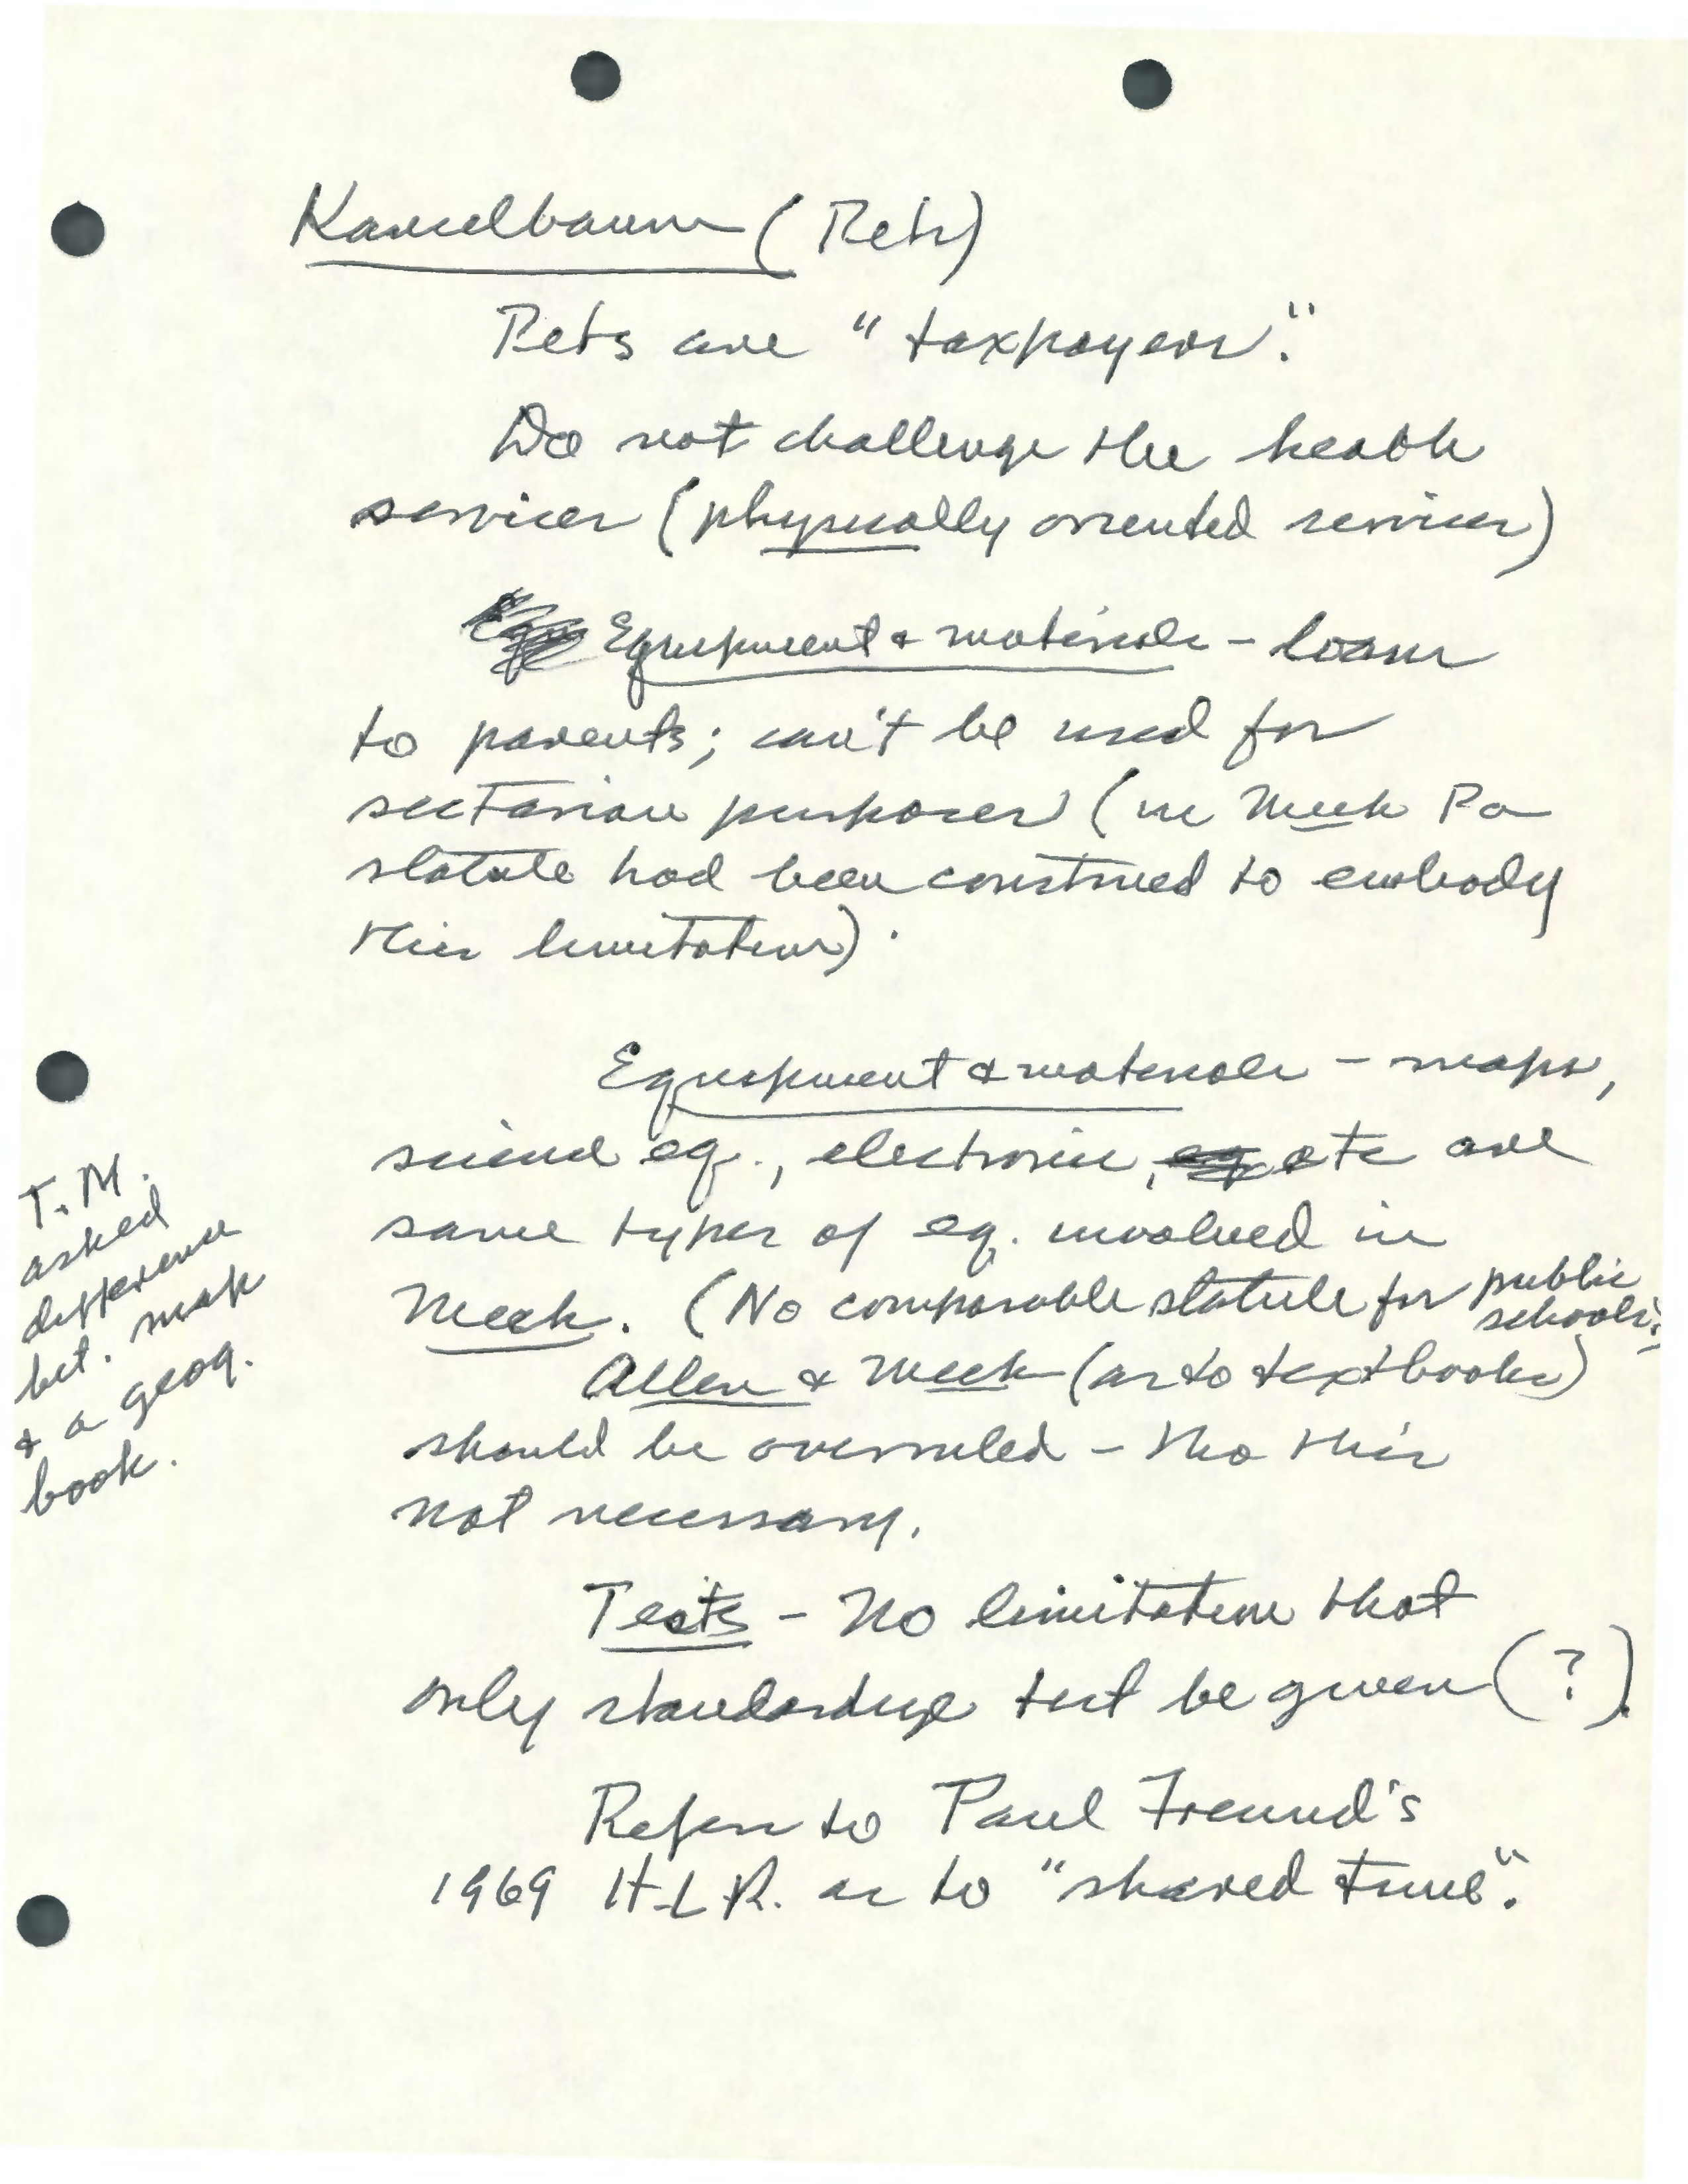 Kancelbaum (Petr)
Petrs are "taxpayers".
Do not challenge the health
services (physically oriented services)
Equipment & materials - loans
to parents; can't be used for
sectarian purposes (in Meek Pa
statute had been construed to embody
this limitation).
Equipment & materials - maps,
science eq., electronic, etc are
same types of eq. involved in
Meek. (No comparable statute for public
schools).
Allen & Meek (as to textbooks)
should be overruled - tho this
not necessary.
Tests - No limitation that
only standardize test be given (?).
Refers to Paul Freund's
1969 H.L.R. as to "shared time".
T.M.
asked
difference
bet. map
& a geog.
book.